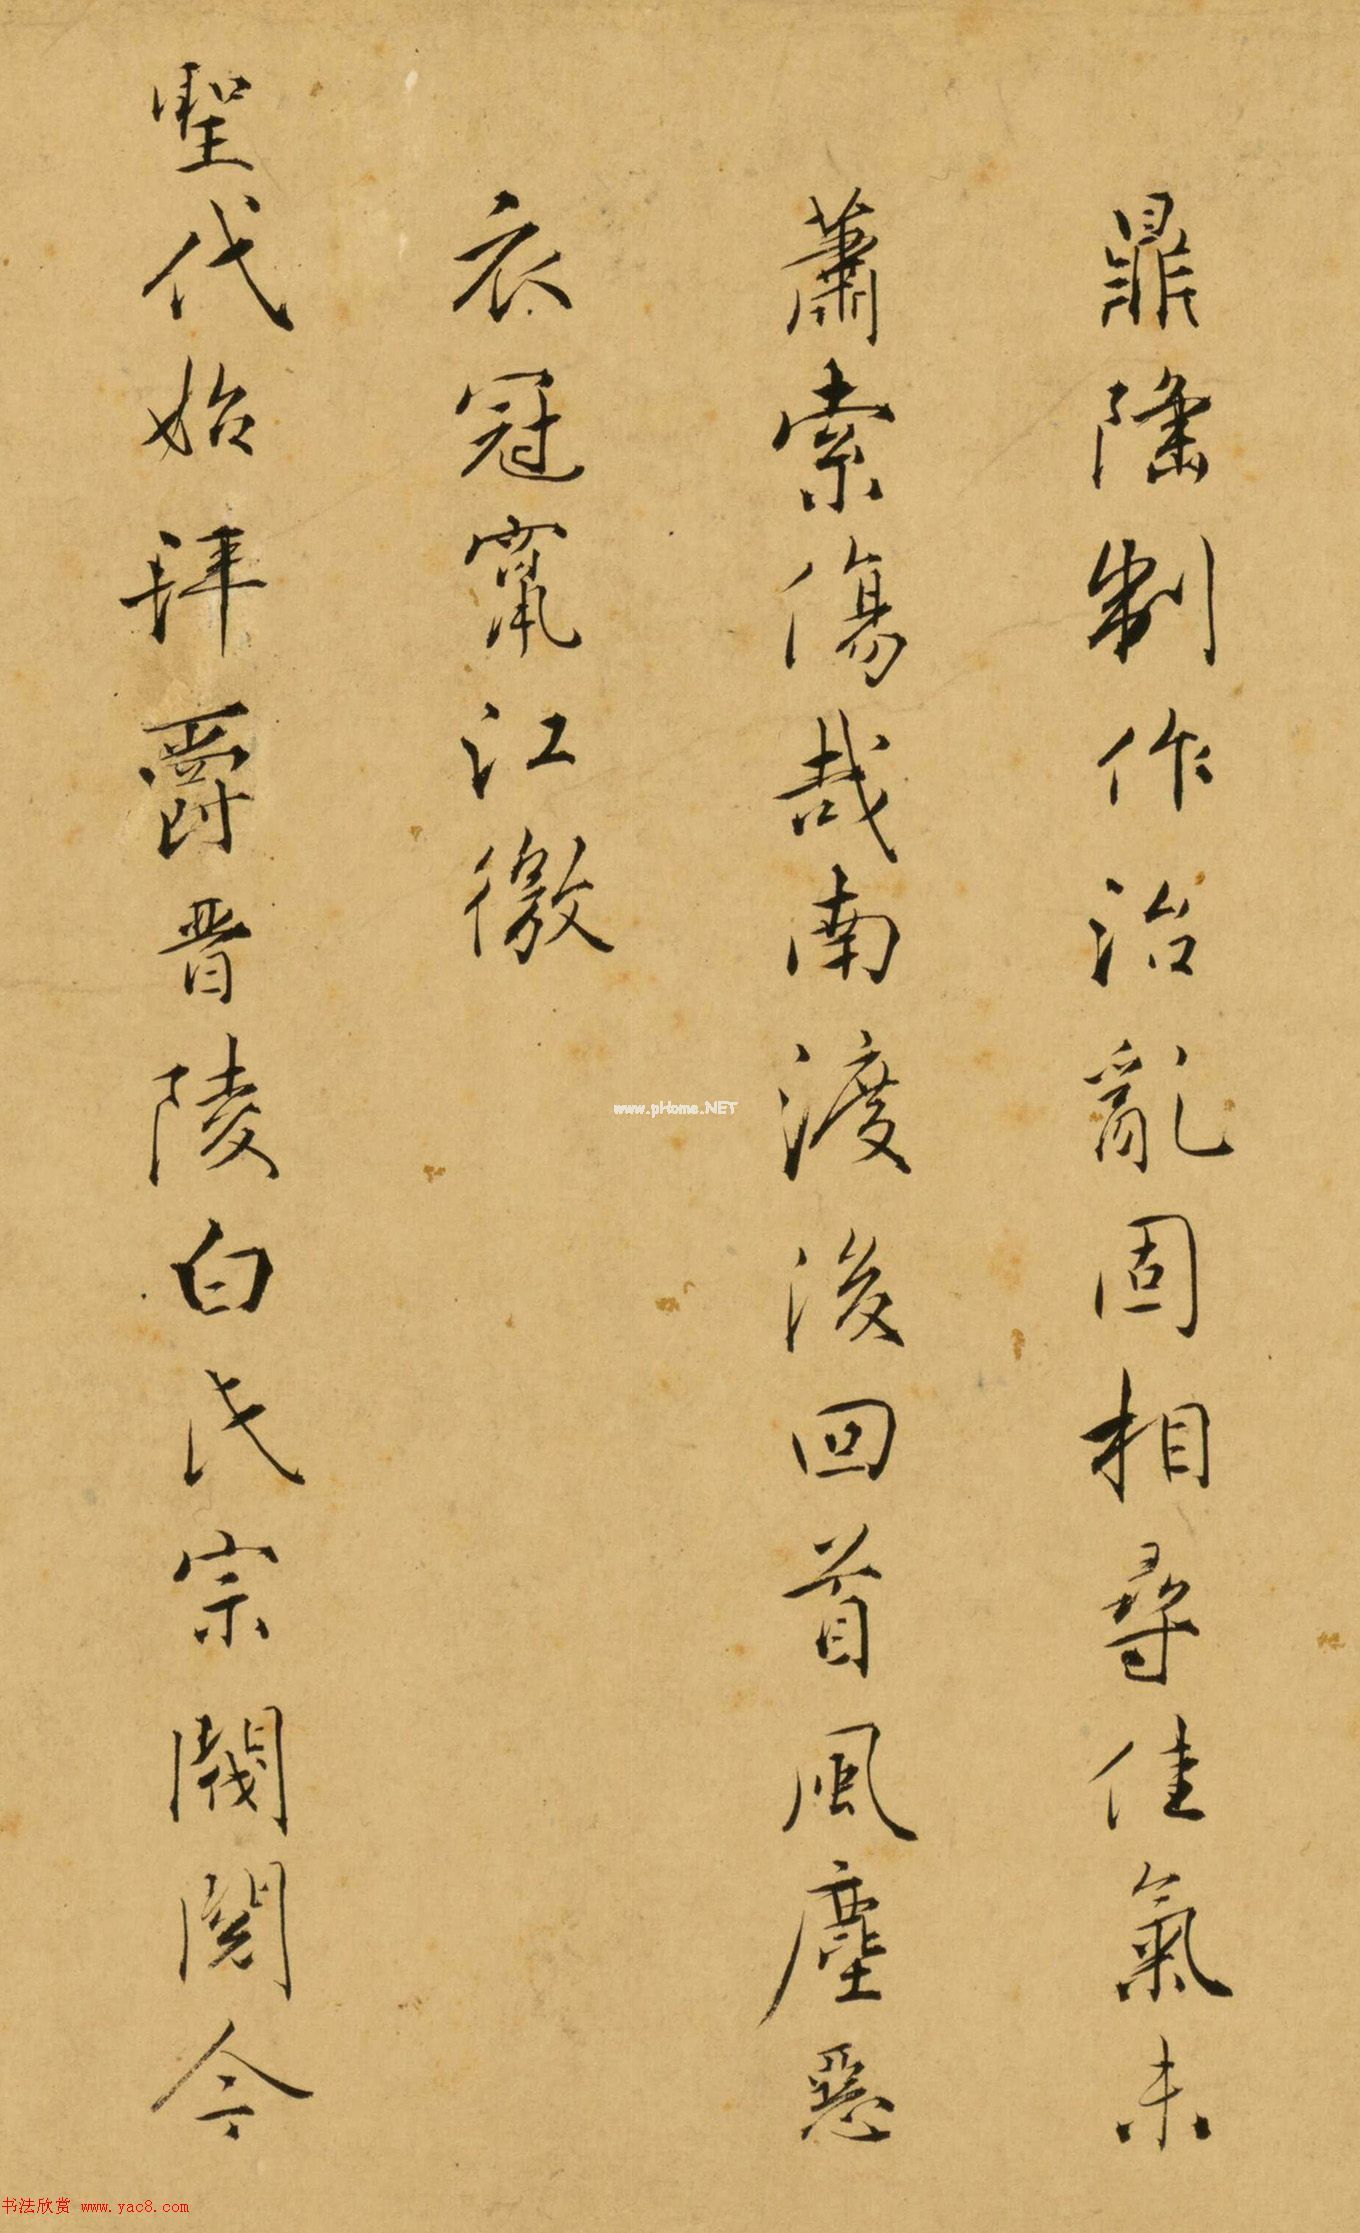 鼎隆制作治亂固相尋佳氣未
蕭索傷哉南渡後回首風塵惡
衣冠竄江徼
聖代始拜爵晉陵白氏宗閥閱今
www.pHome.NET
书法欣赏 www.yac8.com